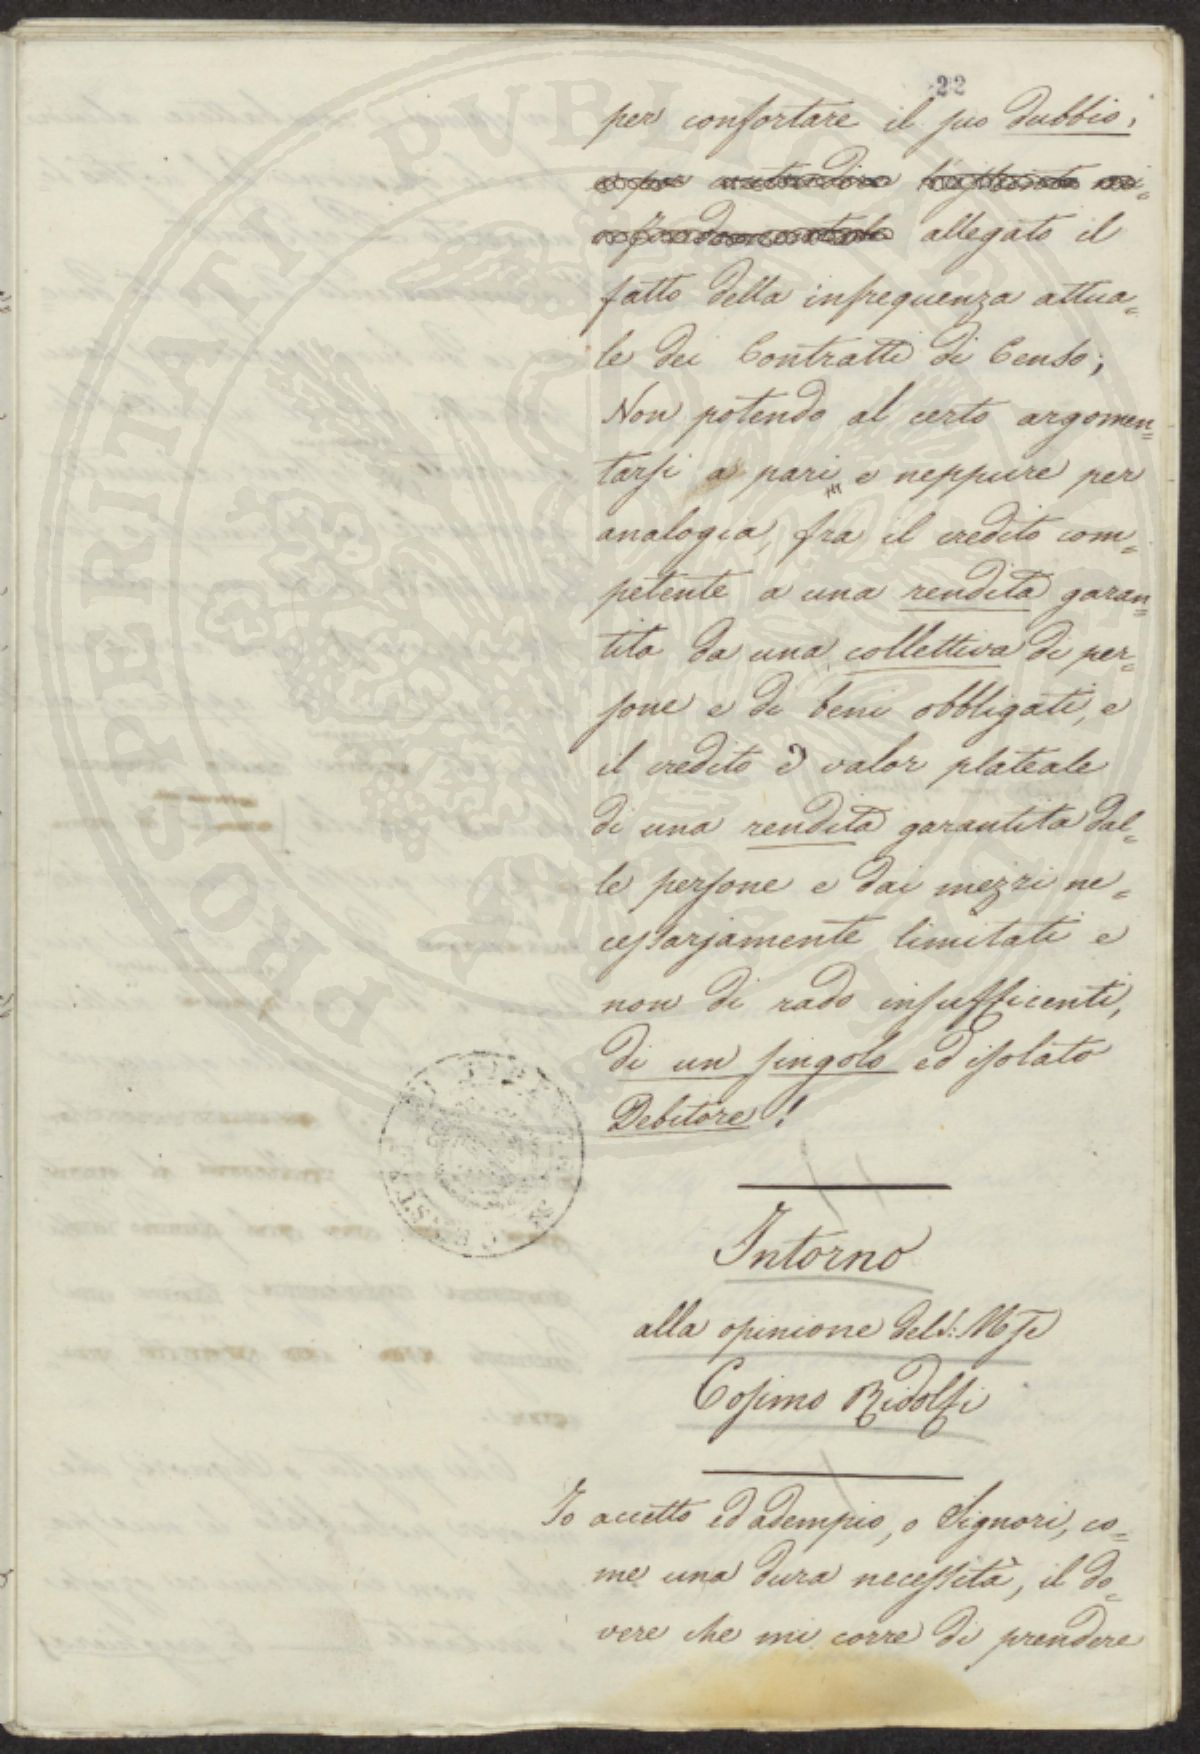 22
per confortare il suo dubbio,
allegato il
fatto della infrequenza attua=
le dei Contratti di Censo;
Non potendo al certo argomen=
tarsi a pari, e neppure per
analogia, fra il credito com=
petente a una rendita garan=
tita da una collettiva di per=
sone e di beni obbligati, e
il credito e valor plateale
di una rendita garantita dal=
le persone e dai mezzi ne=
cessarjamente limitati e
non di rado insufficenti,
di un singolo ed isolato
Debitore!
Intorno
alla opinione del S: Mse
Cosimo Ridolfi
Io accetto ed adempio, o Signori, co=
me una dura necessità, il do=
vere che mi corre di prendere
PROSPERITATI PVBLICAE